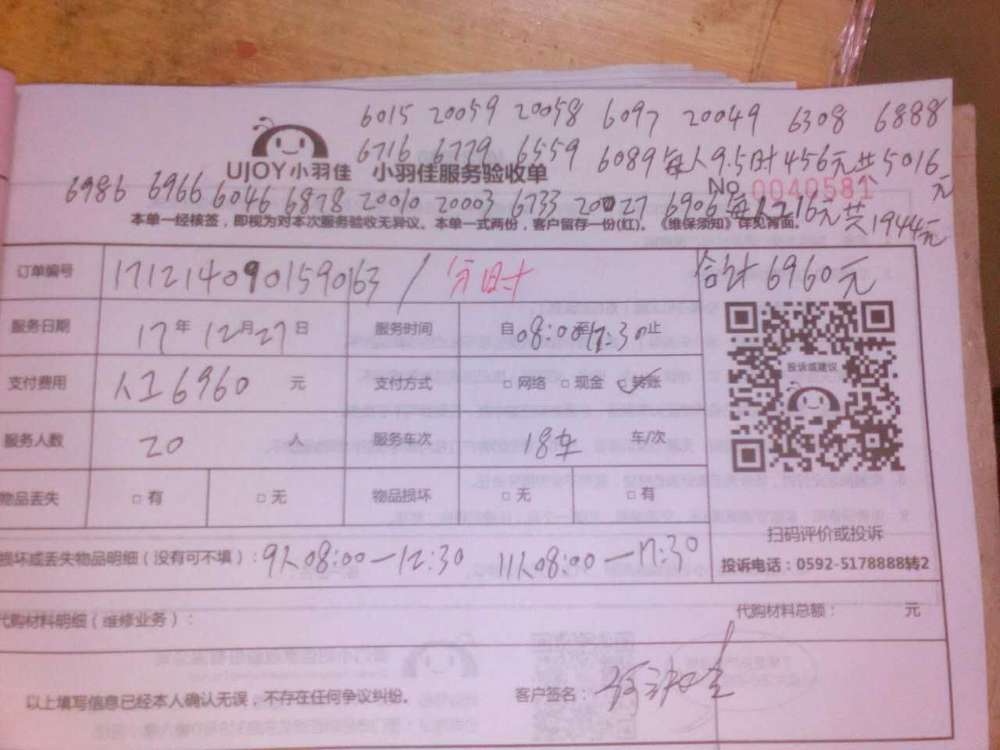 6015 20059 20058 6097 20049 6308 6888
6716 6779 6559 6089 每人9.5时456元共5016元
UJOY小羽佳 小羽佳服务验收单
No 0040581
6986 6966 6046 6878 20010 20003 6733 20027 6906 每人216元共1944元
本单一经核签,即视为对本次服务验收无异议。本单一式两份,客户留存一份(红)。《维保须知》详见背面。
订单编号 171214090159063 / 分时 合计6960元
服务日期 17年12月27日 服务时间 自08:00至12:30止
支付费用 人工6960 元 支付方式 □网络 □现金 ☑转账
投诉或建议
服务人数 20 人 服务车次 18车 车/次
物品丢失 □有 □无 物品损坏 □无 □有
扫码评价或投诉
损坏或丢失物品明细(没有可不填): 9人08:00—12:30 11人08:00—17:30
投诉电话:0592-5178888转2
代购材料明细(维修业务): 代购材料总额: 元
以上填写信息已经本人确认无误,不存在任何争议纠纷。 客户签名: